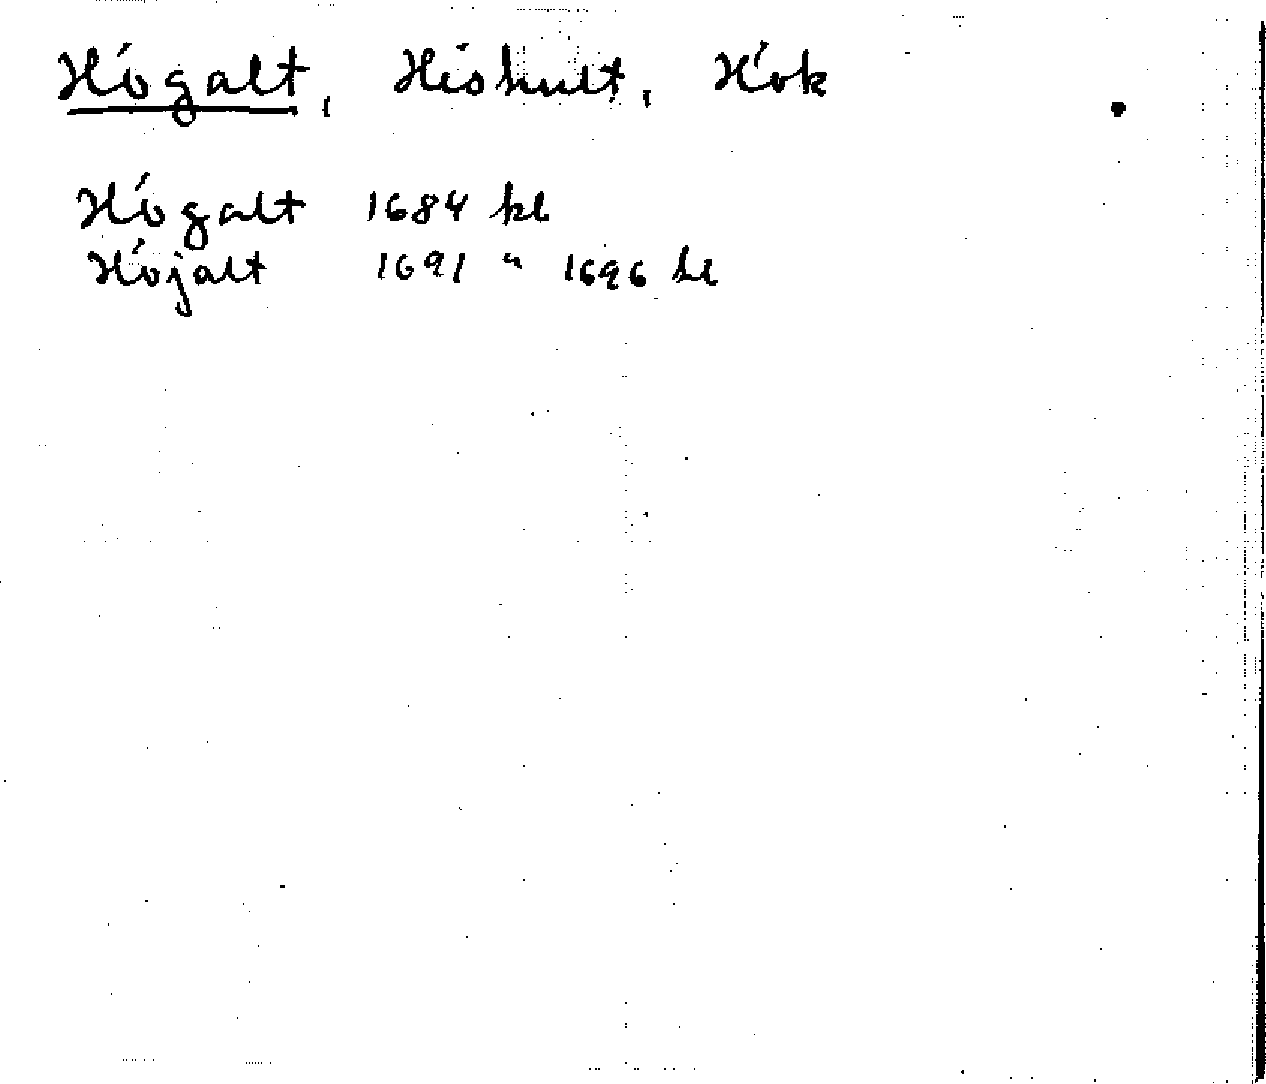 Högalt, Hishult, Hök
Högalt 1684 kl
Höjalt 1691 " 1696 kl